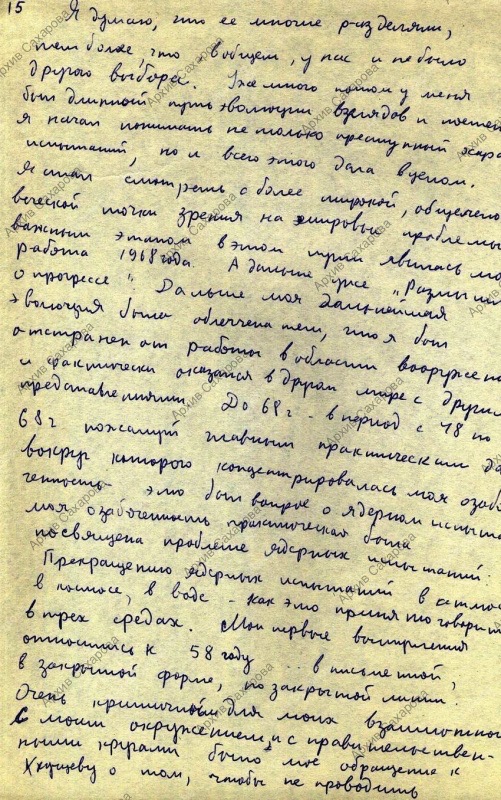 15
Я думаю, что ее многие разделяли,
тем более, что вообщем, у нас и не было
другого выбора. Уже много потом у меня
был длинный путь эволюции взглядов и
я начал понимать не только преступный
испытаний, но и всего этого дела в целом.
Я стал смотреть с более широкой, общечело
веческой точки зрения на мировые проблемы
важным этапом в этом пути явилась мо
работа 1968 года. А дальше уже "Размыш
о прогрессе". Дальше моя дальнейшая
эволюция была облегчена тем, что я был
отстранен от работы в области вооруже
и фактически оказался в другом мире с други
представлениями. До 68 г - в период с 48 по
68 г пожалуй главным практическим де
вокруг которого концентрировалась моя озабо
ченность это был вопрос о ядерном испыта
моя озабоченность практическая была
посвящена проблеме ядерных испытаний.
Прекращению ядерных испытаний в атмос
в космосе, в воде - как это принято говорит
в трех средах. Мои первые выступления
относились к 58 году ... в письменной,
в закрытой форме, по закрытой линии.
Очень критичной для моих взаимоотно
с моим окружением, и с правительствен-
ными кругами было мое обращение к
Хрущеву о том, чтобы не проводить
Архив Сахарова